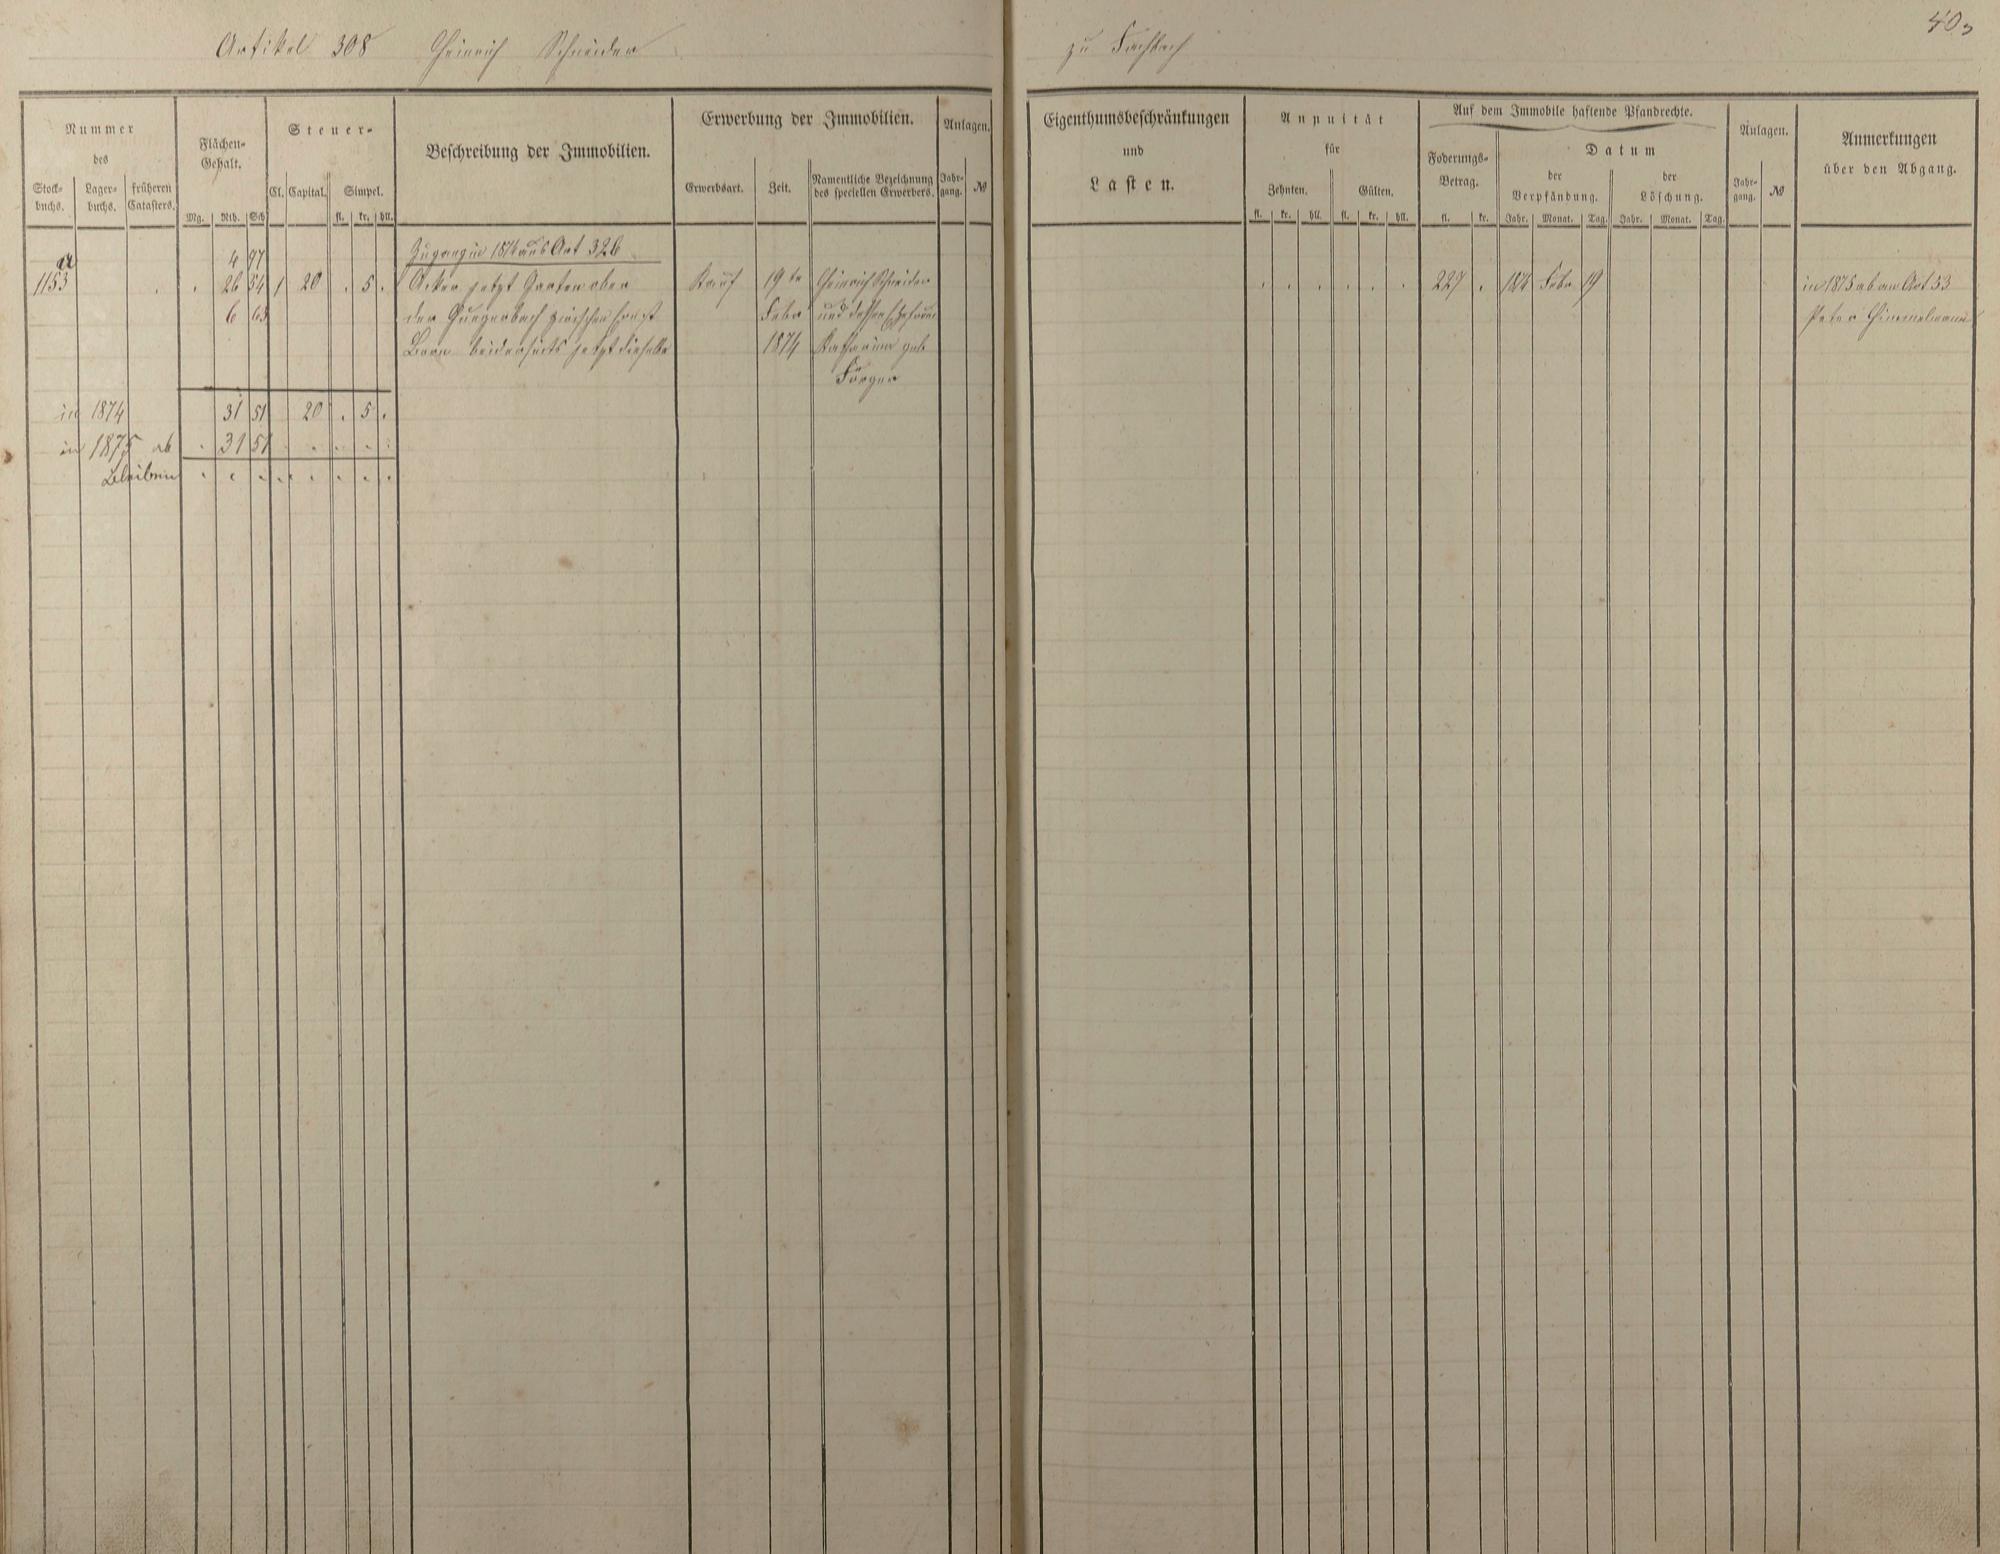 Artikel 308 Heinrich Schneider
zu Fachbach
403
Nummer
des
Stock-
buchs.
Lager-
buchs.
früheren
Catasters.
Flächen-
Gehalt.
Mg. Rth. Sch
Steuer-
Cl. Capital. Simpel.
fl. kr. hll.
Beschreibung der Immobilien.
Erwerbung der Immobilien.
Erwerbsart. Zeit.
Namentliche Bezeichnung
des speciellen Erwerbers.
Anlagen.
Jahr-
gang.
№
Eigenthumsbeschränkungen
und
Lasten.
Annuität
für
Zehnten. Gülten.
fl. kr. hll. fl. kr. hll.
Auf dem Immobile haftende Pfandrechte.
Foderungs-
Betrag.
fl. kr.
Datum
der
Verpfändung.
Jahr. Monat. Tag.
der
Löschung.
Jahr. Monat. Tag.
Anlagen.
Jahr-
gang.
№
Anmerkungen
über den Abgang.
4 97 Zugang in 1874 aus Art 326
a
1153 . . 26 54 1 20 . 5 . Acker jetzt Garten oben Kauf 19te Heinrich Schneider . . . . . . 227 . 1874 Febr 19 in 1875 ab am Art 53
6 63 der zwischen Ernst Febr und dessen Ehefrau Peter Himmelmann
Born beiderseits jetzt dieselbe 1874 Katharina geb
Förger
in 1874 31 51 20 . 5 .
in 1875 ab . 31 51 . . . .
Bleiben . . . . . . . . .